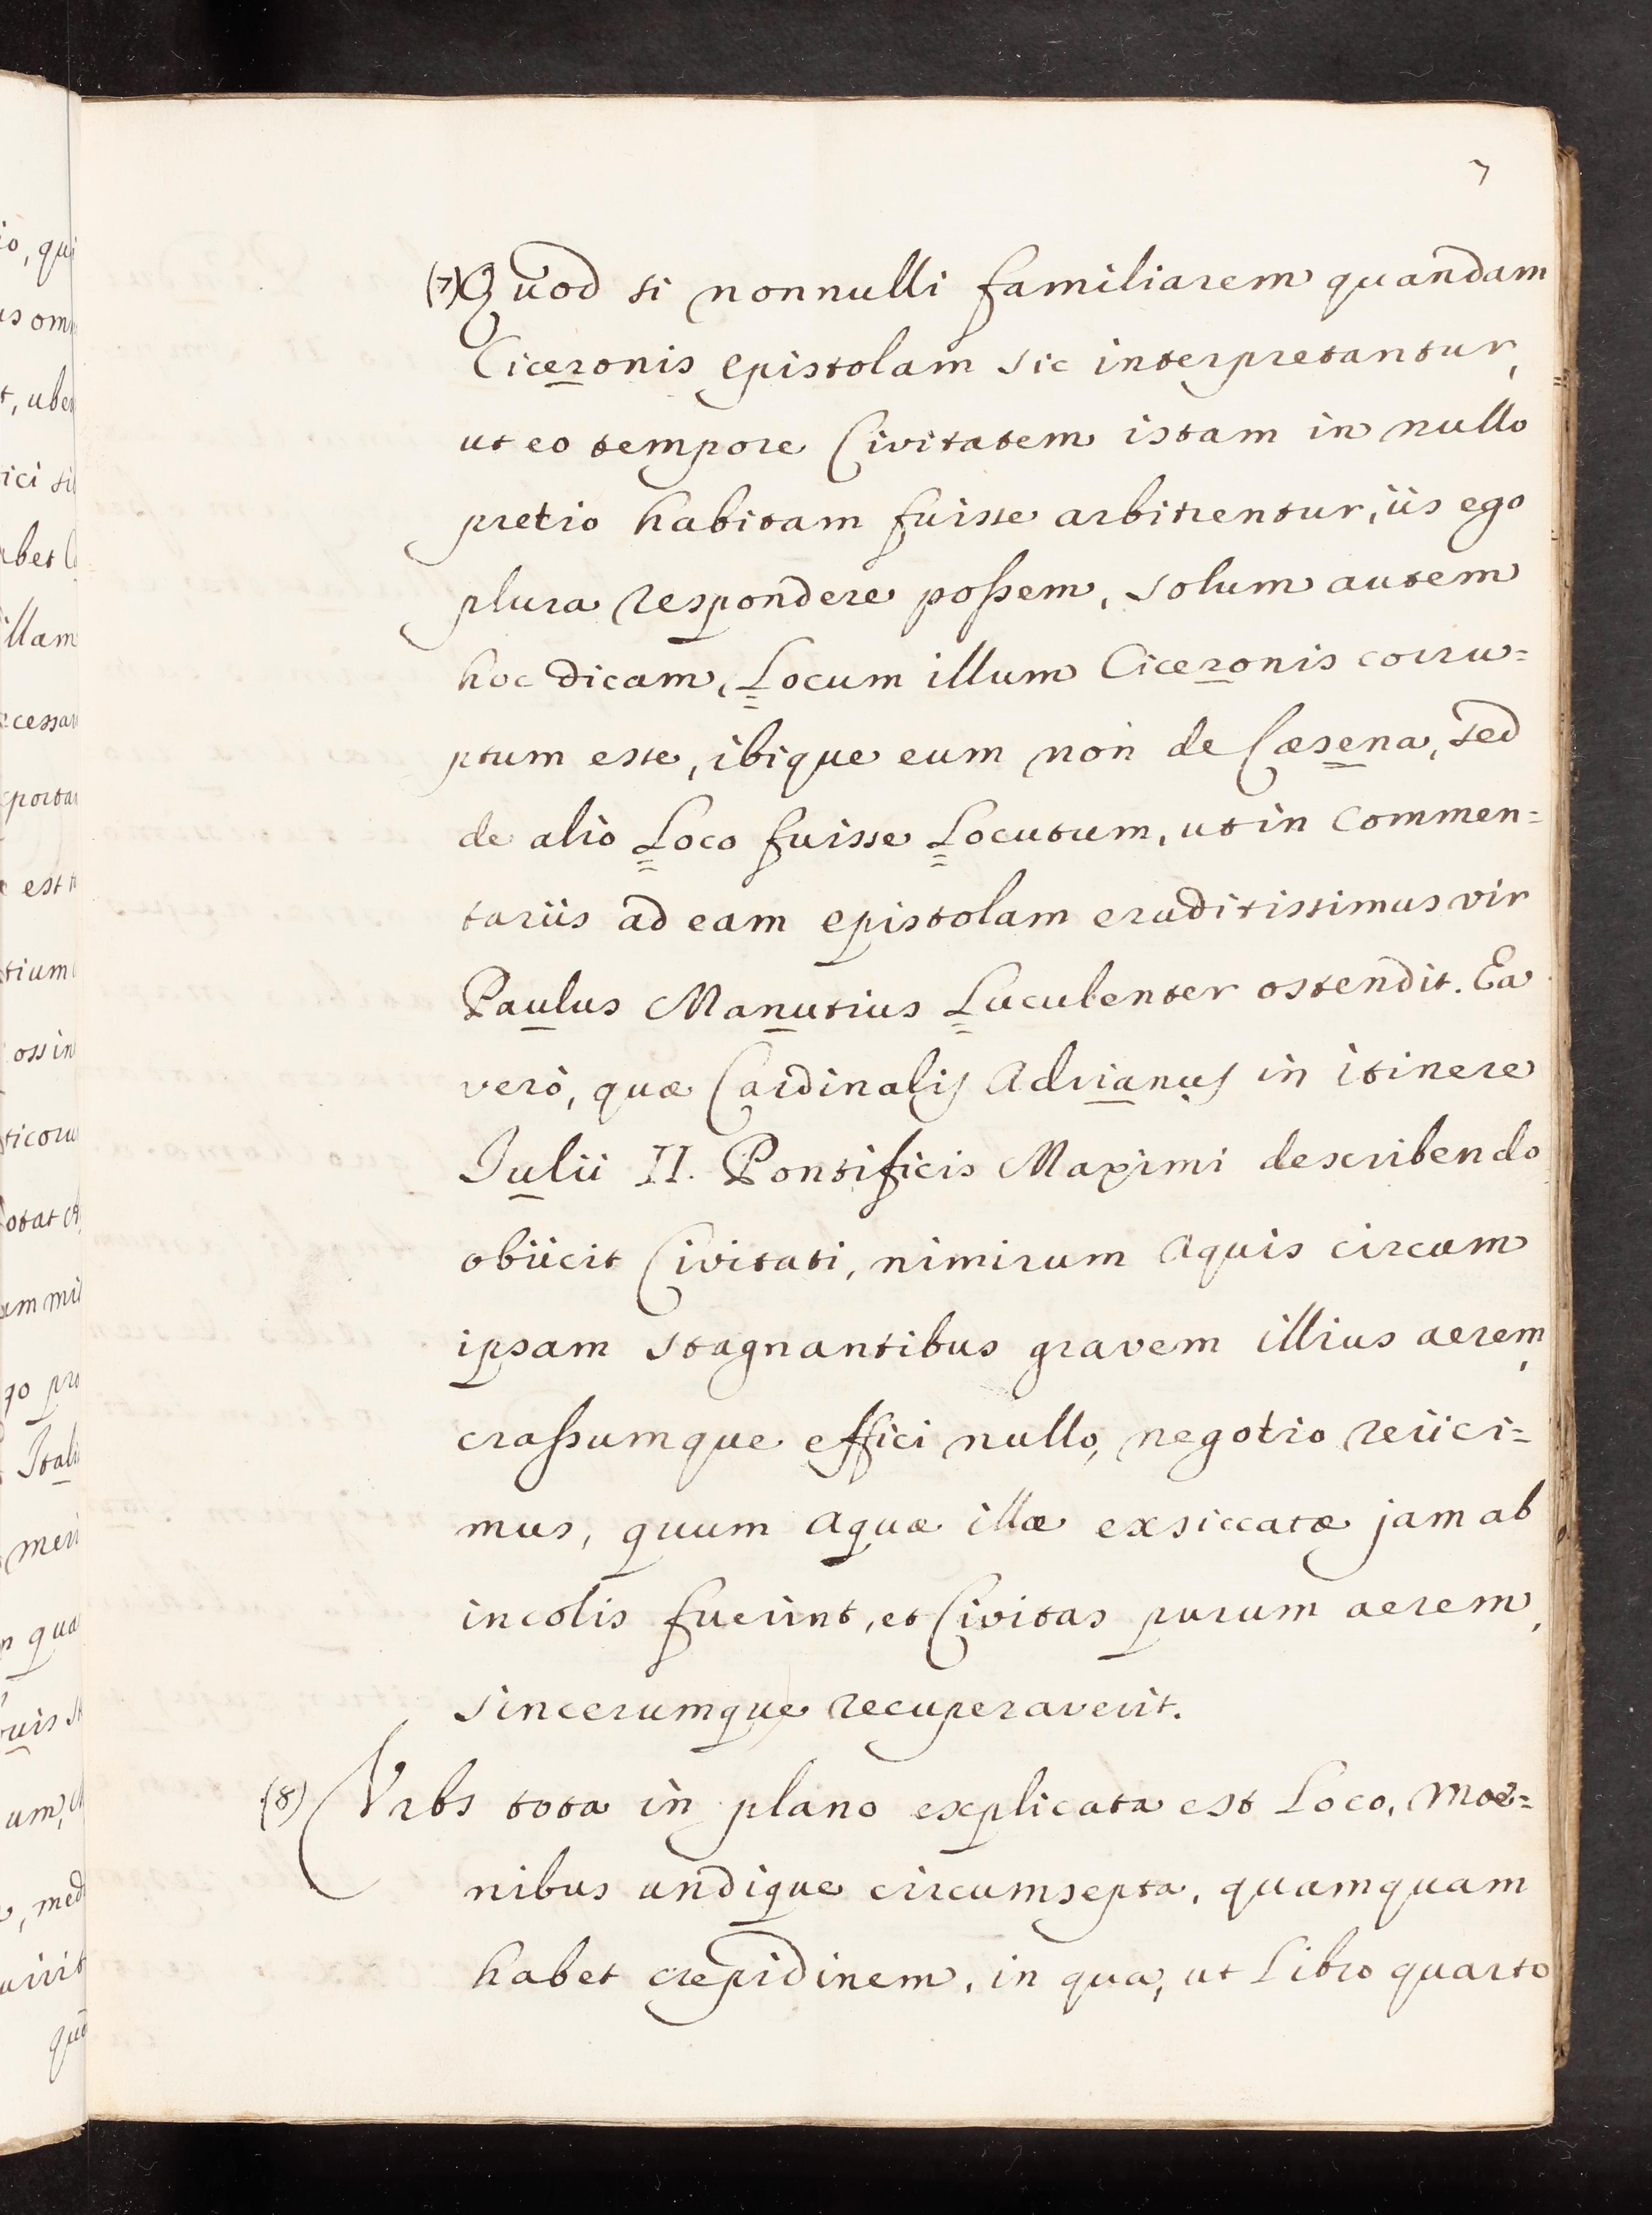 7
(7) Quod si nonnulli familiarem quandam
Ciceronis epistolam sic interpretantur,
ut eo tempore Civitatem istam in nullo
pretio habitam fuisse arbitrentur, iis ego
plura respondere possem, solum autem
hoc dicam, Locum illum Ciceronis corru=
ptum esse, ibique eum non de Cæsena, sed
de alio Loco fuisse Locutum, ut in Commen=
tariis ad eam epistolam eruditissimus vir
Paulus Manutius Luculenter ostendit. Ea
verò, quæ Cardinalis Adrianus in itinere
Iulii II. Pontificis Maximi describendo
obiicit Civitati, nimirum Aquis circum
ipsam stagnantibus gravem illius aerem,
crassumque effici nullo, negotio reiici=
mus, quum Aquæ illæ exsiccatæ jam ab
incolis fuerint, et Civitas purum aerem,
sincerumque recuperaverit.
(8) Vrbs tota in plano explicata est Loco, Moe=
nibus undique circumsepta, quamquam
habet crepidinem, in qua, ut Libro quarto